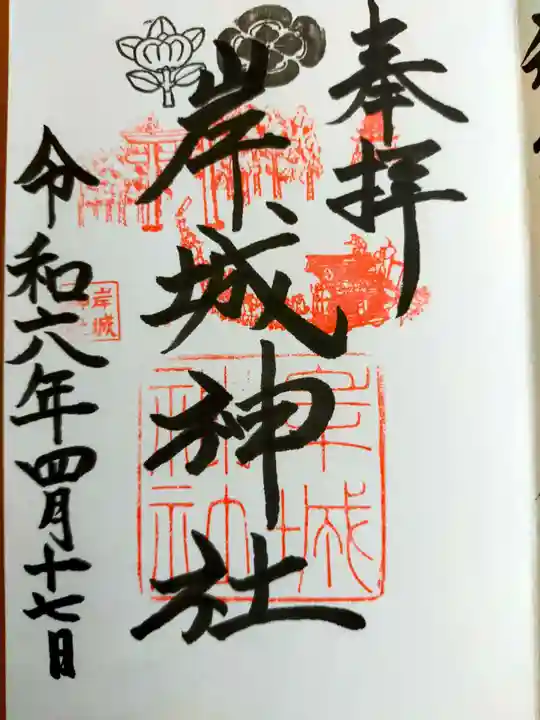 奉拝
岸城神社
令和六年四月十七日
岸城
岸城神社